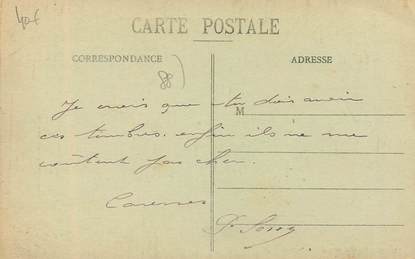 40€
CARTE POSTALE
CORRESPONDANCE
ADRESSE
88
Je crois que tu dois avoir
M
ces timbres. enfin ils ne me
coûtent pas cher.
Caresses